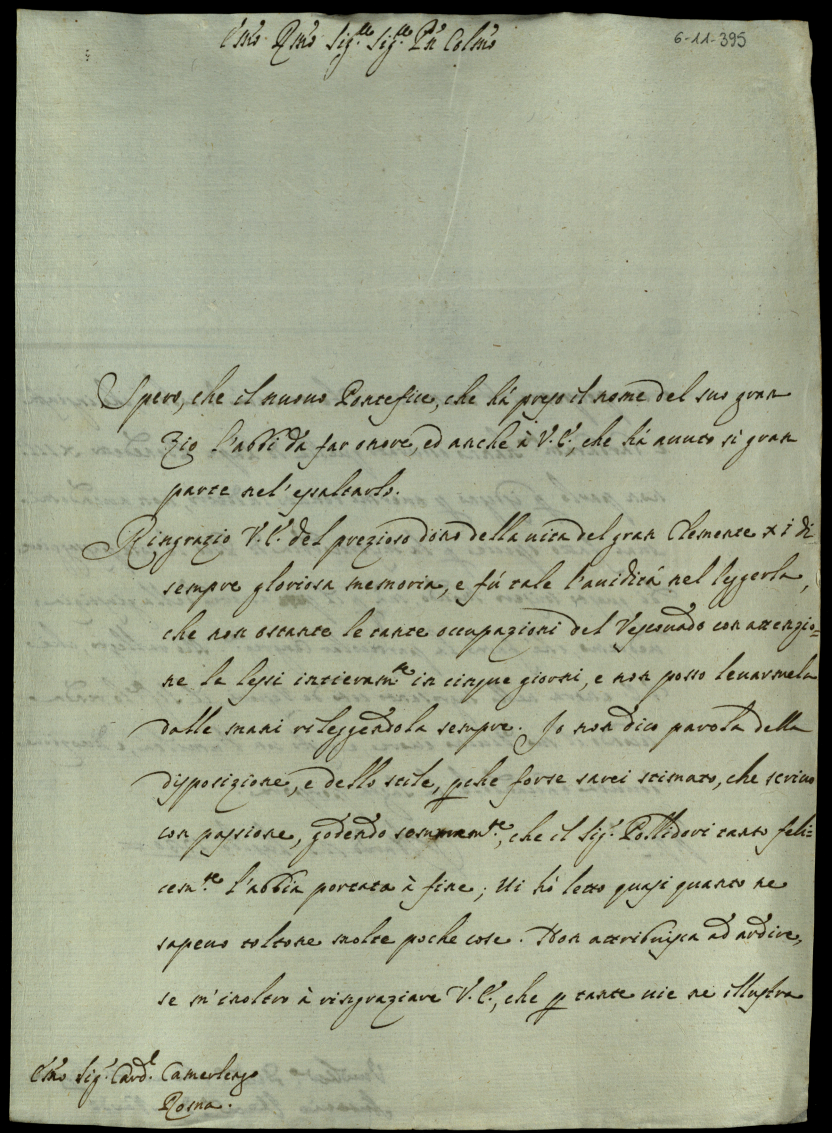 E'mo Rmo Sig.re Sig.re P'n Colmo
6-11-395
Spero, che il nuovo Pontefice, che há preso il nome del suo gran
Zio l'abbi dà far onore, ed anche à V.E., che há avuto si gran
parte nel' esaltarlo.
Ringrazio V.E. del prezioso dono della vita del gran Clemente XI di
sempre gloriosa memoria, e fú tale l'avidità nel leggerla,
che non ostante le tante occupazioni del Vescovado con attenzio=
ne la lessi intieram.te in cinque giorni, e non posso levarmela
dalle mani rileggendola sempre. Io non dico parola della
disposizione, e dello stile, pche forse sarei stimato, che scrivo
con passione, godendo sommam.te, che il Sig. Pollidori tanto feli=
cem.te l'abbia portata à fine; Vi hó letto quasi quanto ne
sapevo toltone molte poche cose. Non attribuisca ad ardire,
se m'inoltro à ringraziare V.E., che p tante vie ne illustra
E'mo Sig. Card.l Camerlengo
Roma.